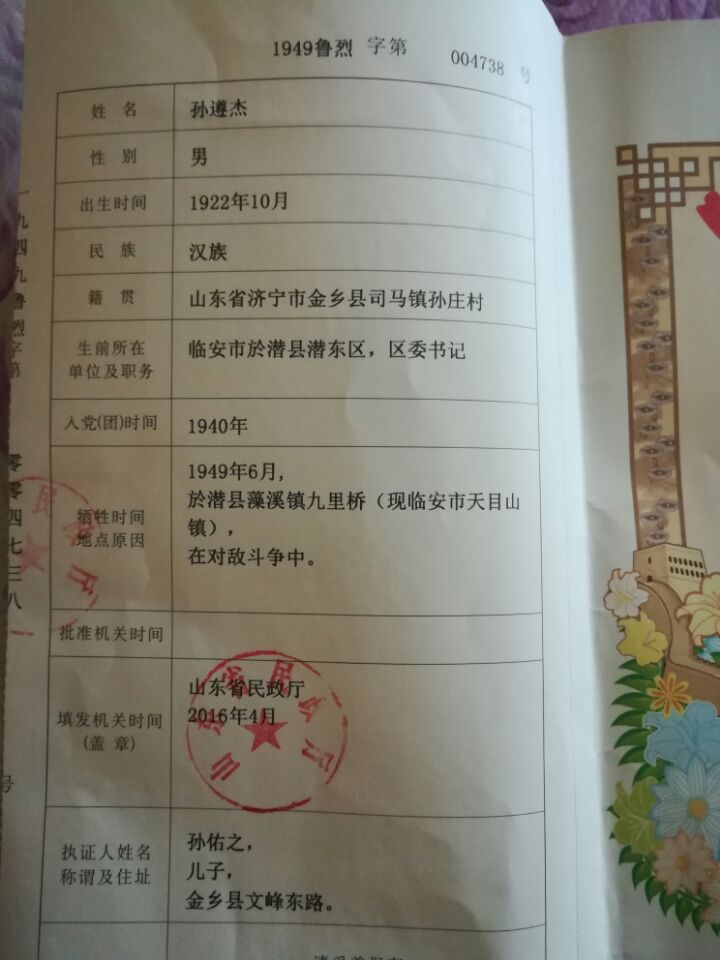 1949鲁烈 字第 004738 号
姓 名 孙遵杰
性 别 男
出生时间 1922年10月
民 族 汉族
籍 贯 山东省济宁市金乡县司马镇孙庄村
生前所在
单位及职务
临安市於潜县潜东区，区委书记
入党(团)时间 1940年
牺牲时间
地点原因
1949年6月,
於潜县藻溪镇九里桥（现临安市天目山
镇），
在对敌斗争中。
批准机关时间
填发机关时间
(盖 章)
山东省民政厅
2016年4月
执证人姓名
称谓及住址
孙佑之,
儿子,
金乡县文峰东路。
一九四九鲁烈字第
零零四七三八
号